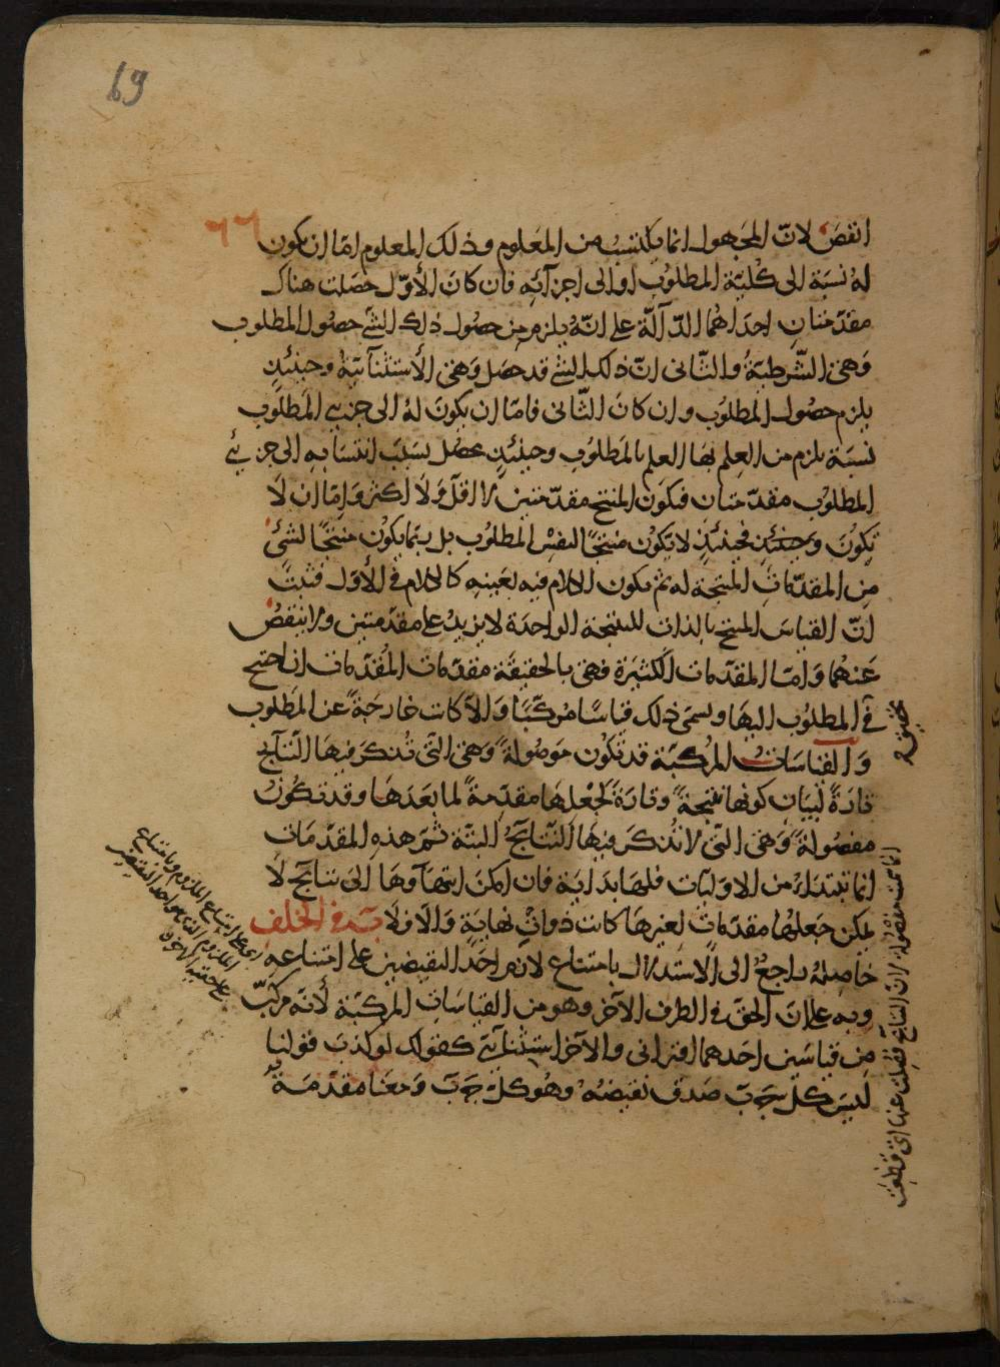 69
٦٦
انقص لانّ المجهول انما يكتسب من المعلوم وذلك المعلوم امّا ان يكون
له نسبة الى كليّة المطلوب او الى اجزآئه فان كان الأوّل حصلت هناك
مقدّمتان احداهما الدّآلّة على انّه يلزم من حصول ذلك الشّئ حصول المطلوب
وهى الشّرطيّة والثّانى انّ ذلك الشئ قد حصل وهى الأستثنآئيّة وحينئذٍ
يلزم حصول المطلوب وان كان الثّانى فامّا ان يكون له الى جزئى المطلوب
نسبة يلزم من العلم بها العلم بالمطلوب وحينئذٍ يحصل بسبب انتسابه الى جزئى
المطلوب مقدّمتان فيكون المنتج مقدّمتين لا اقلّ ولا اكثر وامّا ان لا
يكون وحينئذٍ فحينئذٍ لا يكون منتجًا لنفس المطلوب بل ربّما يكون منتجًا لشئ
من المقدّمات المنتجة له ثم يكون الكلام فيه بعينه كالكلام فى الأوّل فثبت
انّ القياس المنتج بالذات للنتيجة الواحدة لا يزيد على مقدّمتين ولا ينقص
عنهما وامّا المقدّمات الكثيرة فهى بالحقيقة مقدّمات المقدّمات ان احتج
فى المطلوب اليها ويسمى ذلك قياسًا مركّبًا والّا كانت خارجة عن المطلوب
والقياسات المركّبة قد تكون موصولة وهى الّتى تذكر فيها النّتايج
تارة لبيان كونها نتيجة وتارة لجعلها مقدّمة لما بعدها وقد تكون
مفصولة وهى الّتى لا تذكر فيها النّتآئج البتّة ثمّ هذه المقدّمات
انما تبتدئ من الاوّليّات فلها بداية فان امكن انتهآوها الى نتائج لا
يمكن جعلها مقدّمات لغيرها كانت ذوات نهاية والّا فلا فى الخلف
حاصله راجع الى الاستدلال بامتناع لازم احد النقيضين على امتناعه
وبه على انّ الحقّ فى الطرف الآخر وهو من القياسات المركّبة لأنّه مركّب
من قياسين احدهما اقترانى والآخر استثنآئى كقولك لو كذب قولنا
ليس كلّ ج ب صدق نقيضه وهو كلّ ج ب ومعنا مقدّمة
انما سميت مفصولة لان النتايج فصلت عنها اى قطعت